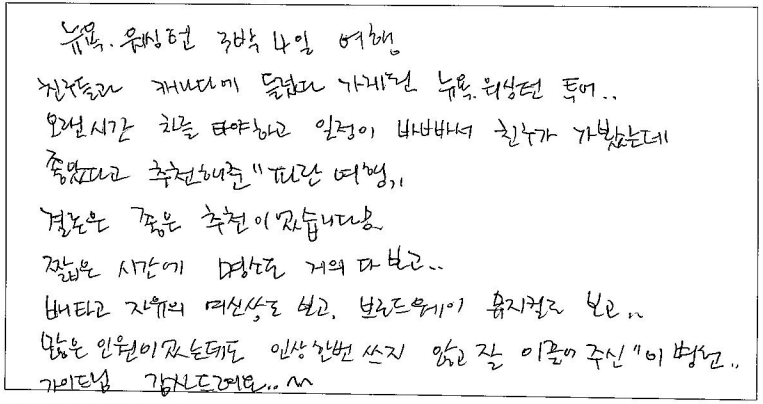 뉴욕. 워싱턴 3박 4일 여행
친구들과 캐나다에 들렸다 가게된 뉴욕.워싱턴 투어..
오랜시간 차를 타야하고 일정이 바빠서 친구가 가봤는데
좋았다고 추천해준 "파란 여행"
결론은 좋은 추천이었습니다용
짧은 시간에 명소도 거의 다 보고..
배타고 자유의 여신상도 보고, 브로드웨이 뮤지컬도 보고..
많은 인원이었는데도 인상한번 쓰지 않고 잘 이끌어 주신 "이 병헌..
가이드님 감사드려요..^^